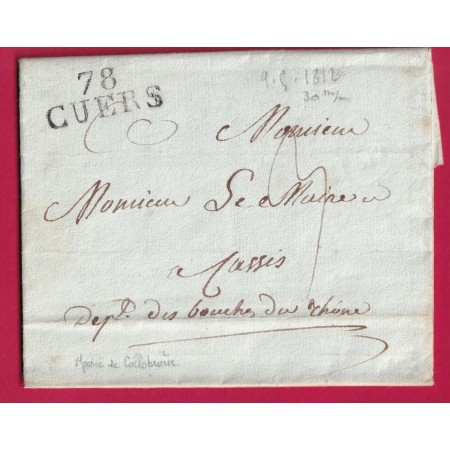 78
CUERS
9.5.1812
30 m/m
Monsieur
Monsieur Le Maire
a Cassis
Dep.t des bouches du rhône
Mairie de Collobrières.